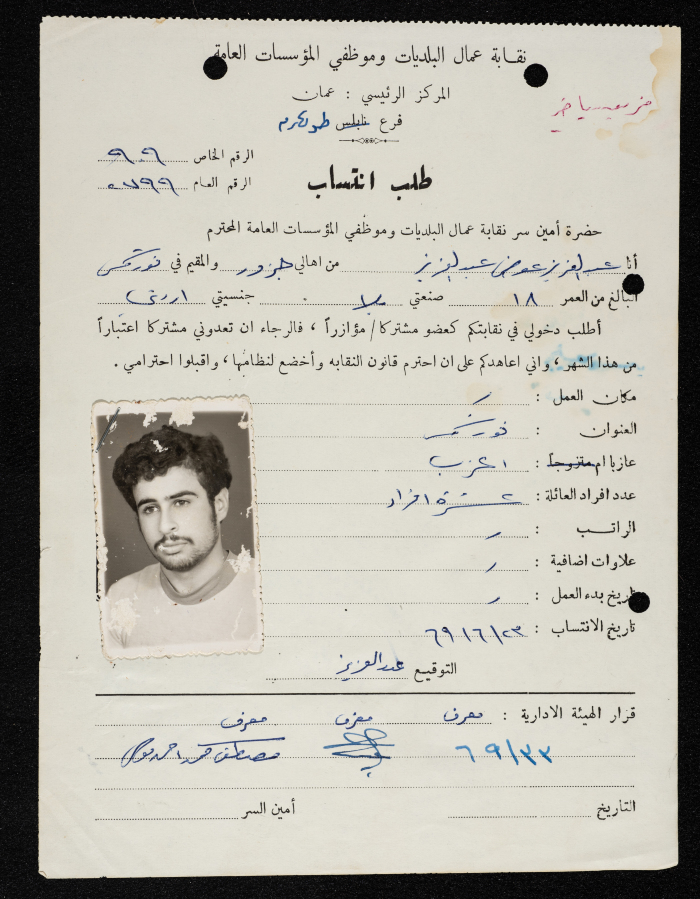 نقابة عمال البلديات وموظفي المؤسسات العامة
المركز الرئيسي : عمان
فرع نابلس طولكرم
الرقم الخاص ٩٠٩
الرقم العام
طلب انتساب
حضرة أمين سر نقابة عمال البلديات وموظفي المؤسسات العامة المحترم
أنا عبد العزيز عوض عبد العزيز من اهالي والمقيم في نور شمس
البالغ من العمر ١٨ صنعتي بلا جنسيتي اردني
أطلب دخولي في نقابتكم كعضو مشتركا / مؤازراً ، فالرجاء ان تعدوني مشتركا اعتباراً
من هذا الشهر ، واني اعاهدكم على ان احترم قانون النقابه وأخضع لنظامها ، واقبلوا احترامي .
مكان العمل :
العنوان : نور شمس
عازبا ام متزوجاً : اعزب
عدد افراد العائلة : عشرة افراد
الراتب :
علاوات اضافية :
تاريخ بدء العمل :
تاريخ الانتساب : ٦٩/٦/٢٣
التوقيع عبد العزيز
قرار الهيئة الادارية : معرف معرف معرف
٦٩/٣٣ مصطفى
التاريخ أمين السر